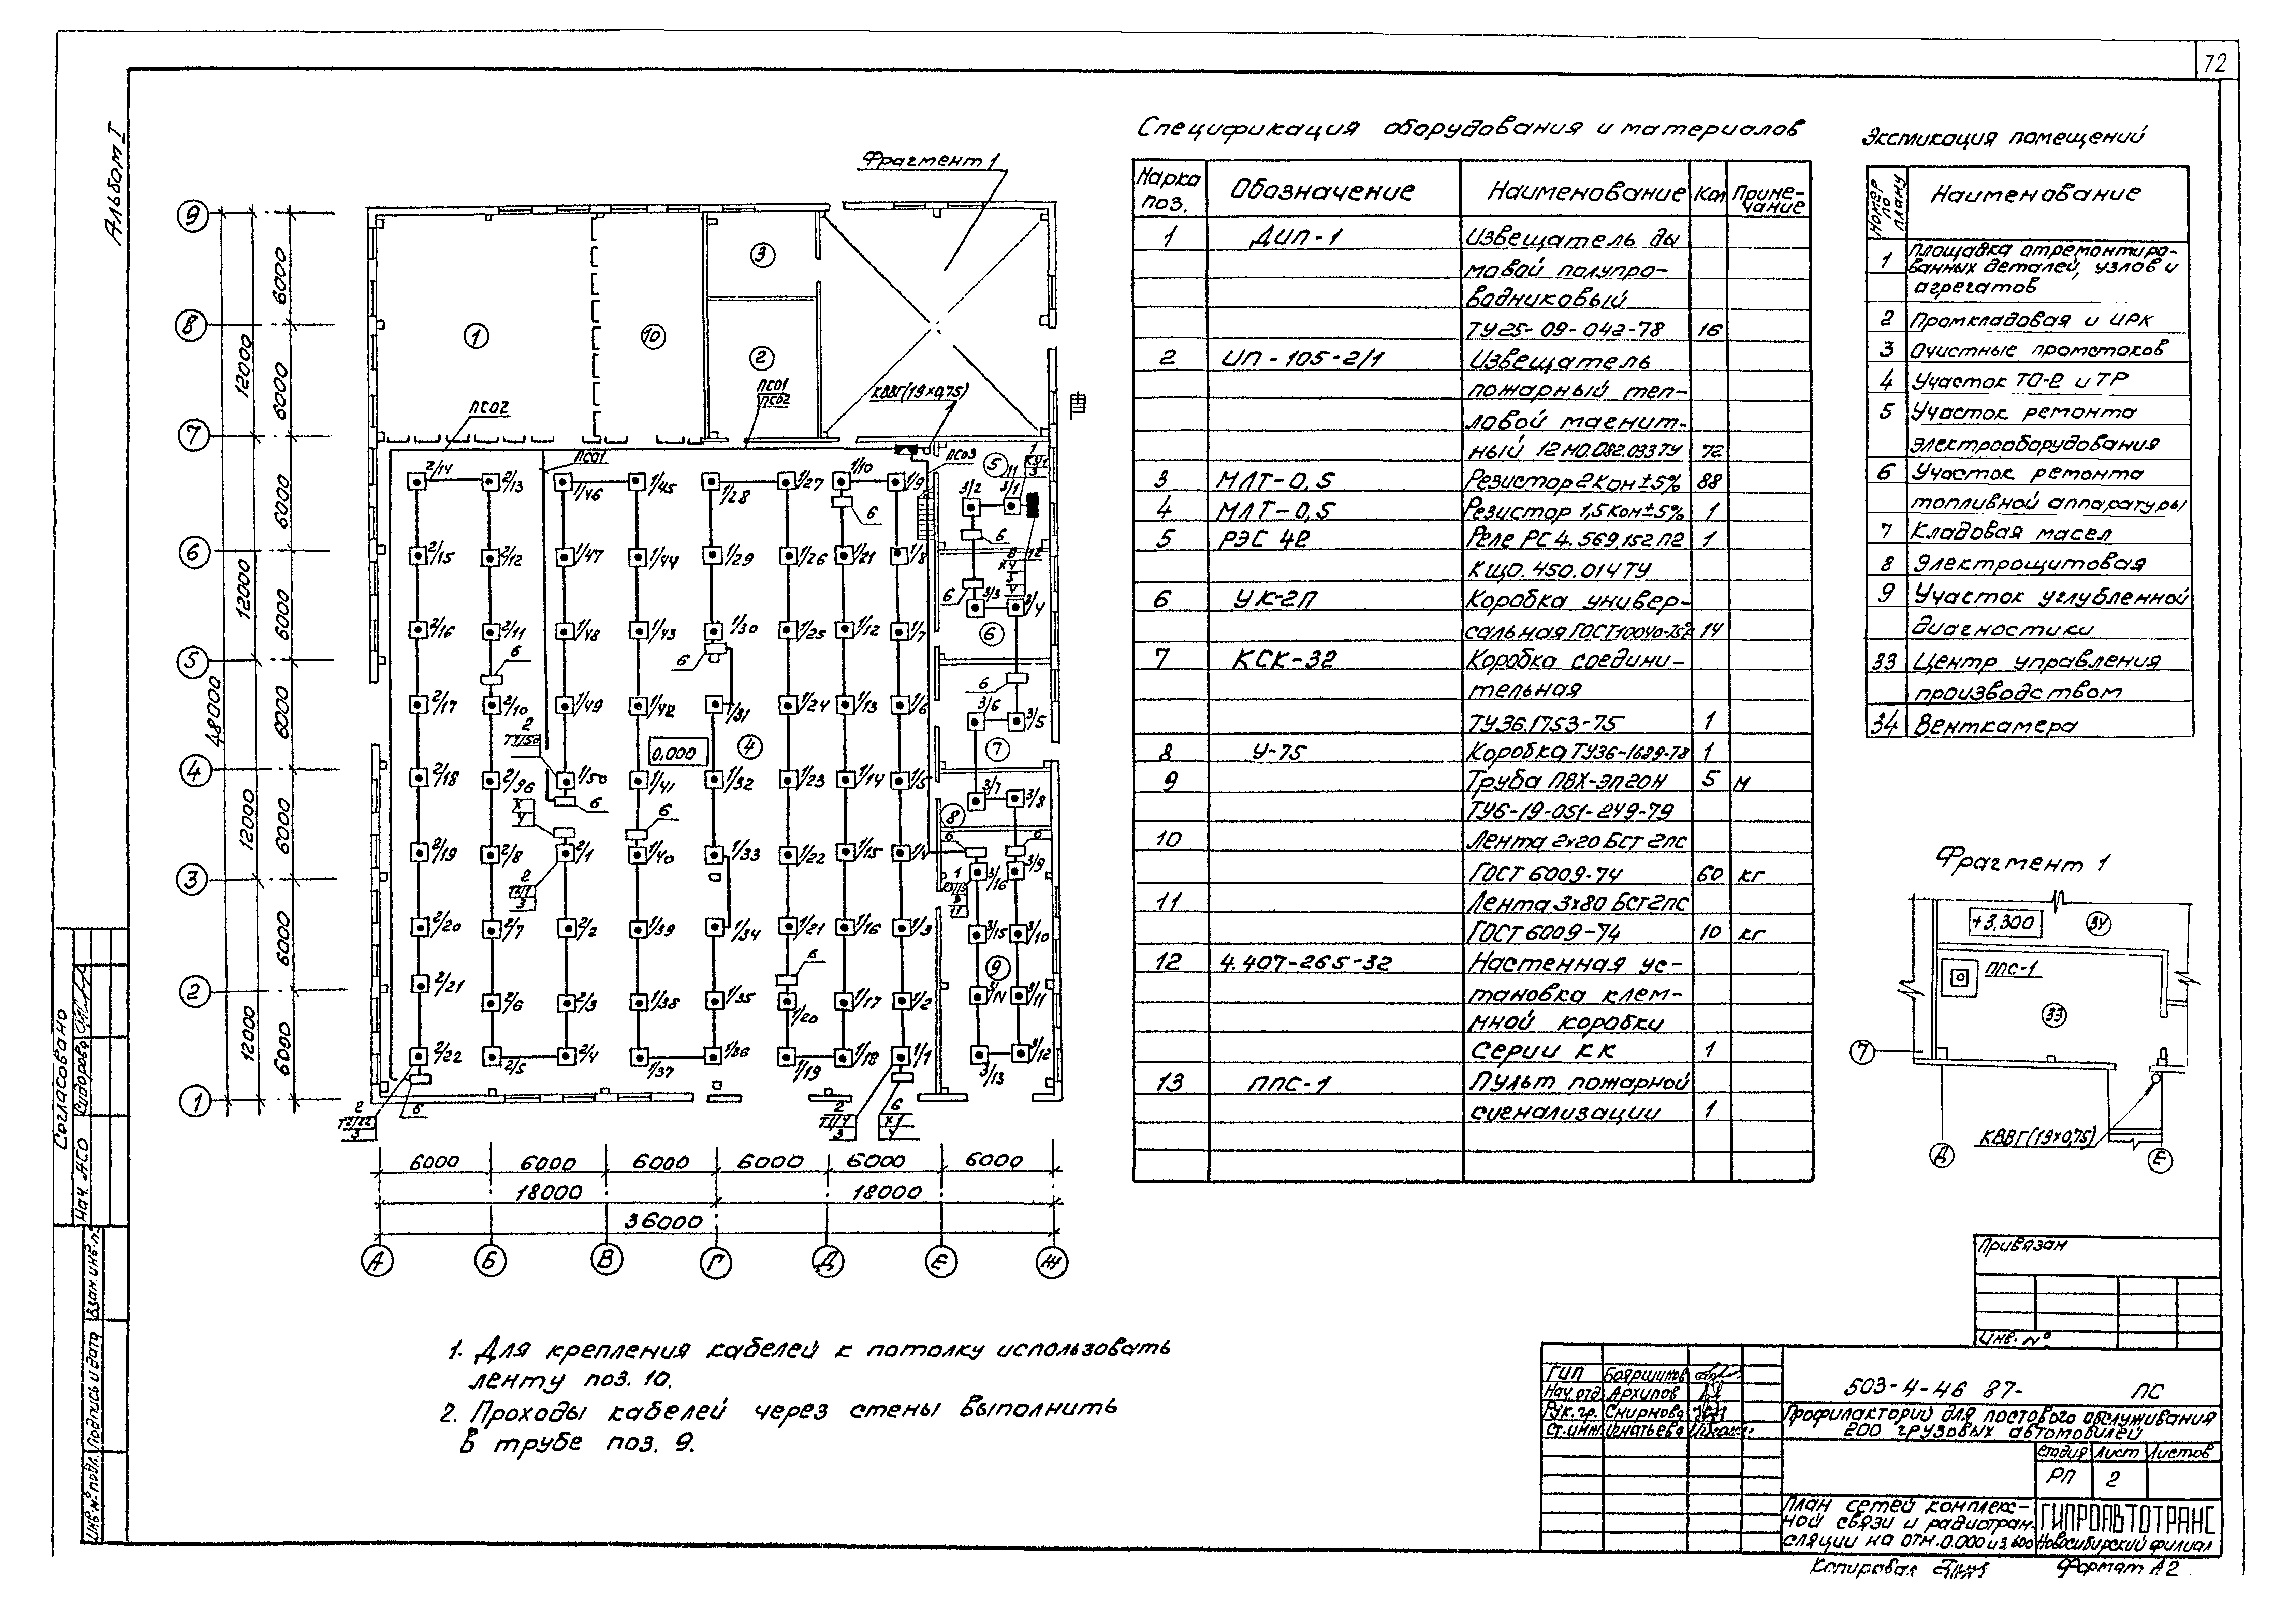 72
Альбом I
Фрагмент 1
9
8
7
6
5
4
3
2
1
6000
6000
6000
6000
6000
6000
6000
6000
12000
12000
12000
12000
48000
1
10
3
2
ПСО2
ПСО1
ПСО1
ПСО2
КВВГ(19×0,75)
ПСО3
2/14
2/13
1/46
1/45
1/28
1/27
1/10
1/9
3/2
3/1
5
6
6
2/15
2/12
1/47
1/44
1/29
1/26
1/11
1/8
6
3/3
3/4
2/16
2/11
1/48
1/43
1/30
1/25
1/12
1/7
6
6
6
6
2/17
2/10
1/49
1/42
1/31
1/24
1/13
1/6
3/6
3/5
0,000
4
7
2/18
2/96
1/50
1/41
1/32
1/23
1/14
1/5
3/7
3/8
6
6
8
2/19
2/8
2/1
1/40
1/33
1/22
1/15
1/4
3/16
3/9
2/20
2/7
2/2
1/39
1/34
1/21
1/16
1/3
3/15
3/10
6
9
2/21
2/6
2/3
1/38
1/35
1/20
1/17
1/2
3/14
3/11
2/22
2/5
2/4
1/37
1/36
1/19
1/18
1/1
3/13
3/12
6
6000
6000
6000
6000
6000
6000
18000
18000
36000
А
Б
В
Г
Д
Е
Ж
1. Для крепления кабелей к потолку использовать
ленту поз. 10.
2. Проходы кабелей через стены выполнить
в трубе поз. 9.
Спецификация оборудования и материалов
Марка поз.
Обозначение
Наименование
Кол
Примечание
1 ДИП-1 Извещатель ды
мовой полупро-
водниковый
ТУ25-09-042-78 16
2 ИП-105-2/1 Извещатель
пожарный теп-
ловой магнит-
ный 12МО.082.033ТУ 72
3 МЛТ-0,5 Резистор 2 Ком ±5% 88
4 МЛТ-0,5 Резистор 1,5 Ком±5% 1
5 РЭС 42 Реле РС4.569.152 П2 1
КЩО.450.014ТУ
6 УК-2П Коробка универ-
сальная ГОСТ10040-75 14
7 КСК-32 Коробка соедини-
тельная
ТУ36.1753-75 1
8 У-75 Коробка ТУ36-1689-78 1
9 Труба ПВХ-ЭП20Н 5 м
ТУ6-19-051-249-79
10 Лента 2×20 Бст 2пс
ГОСТ 6009-74 60 кг
11 Лента 3×80 Бст2пс
ГОСТ 6009-74 10 кг
12 4.407-265-32 Настенная ус-
тановка клем-
мной коробки
серии КК 1
13 ППС-1 Пульт пожарной
сигнализации 1
Экспликация помещений
Номер по плану
Наименование
1 Площадка отремонтиро-
ванных деталей, узлов и
агрегатов
2 Промкладовая и ИРК
3 Очистные промстоков
4 Участок ТО-2 и ТР
5 Участок ремонта
электрооборудования
6 Участок ремонта
топливной аппаратуры
7 Кладовая масел
8 Электрощитовая
9 Участок углубленной
диагностики
33 Центр управления
производством
34 Венткамера
Фрагмент 1
+3,300
34
ППС-1
33
7
КВВГ(19×0,75)
Д
Е
Привязан
Инв. №
ГИП Бояршинов
Нач. отд Архипов
Рук. гр. Смирнова
Ст. инж. Игнатьева
503-4-46 87- ПС
Профилакторий для постового обслуживания
200 грузовых автомобилей
Стадия Лист Листов
РП 2
План сетей комплекс-
ной связи и радиотран-
сляции на отм. 0.000 и 3.600
ГИПРОАВТОТРАНС
Новосибирский филиал
Копировал
Формат А2
Согласовано
Нач. АСО Сидорова
Взам. инв. №
Подпись и дата
Инв. № подл.